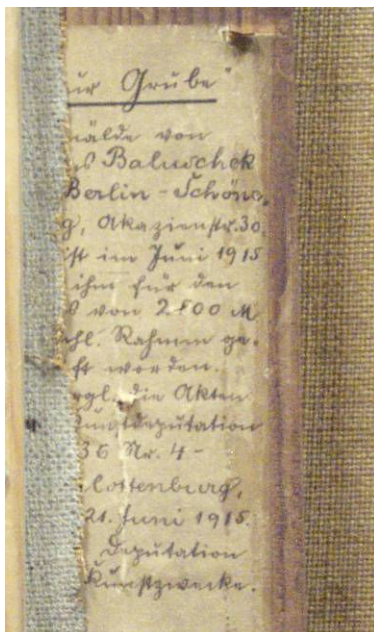 ur Grube"
mälde von
s Baluschek
Berlin-Schöne-
g, Akazienstr. 30.
ist im Juni 1915
ihm für den
s von 2500 M
hl. Rahmen ge-
ft worden.
vgl. die Akten
Kunstdeputation
36 Nr. 4 -
lottenburg,
21. Juni 1915.
Deputation
Kunstzwecke.